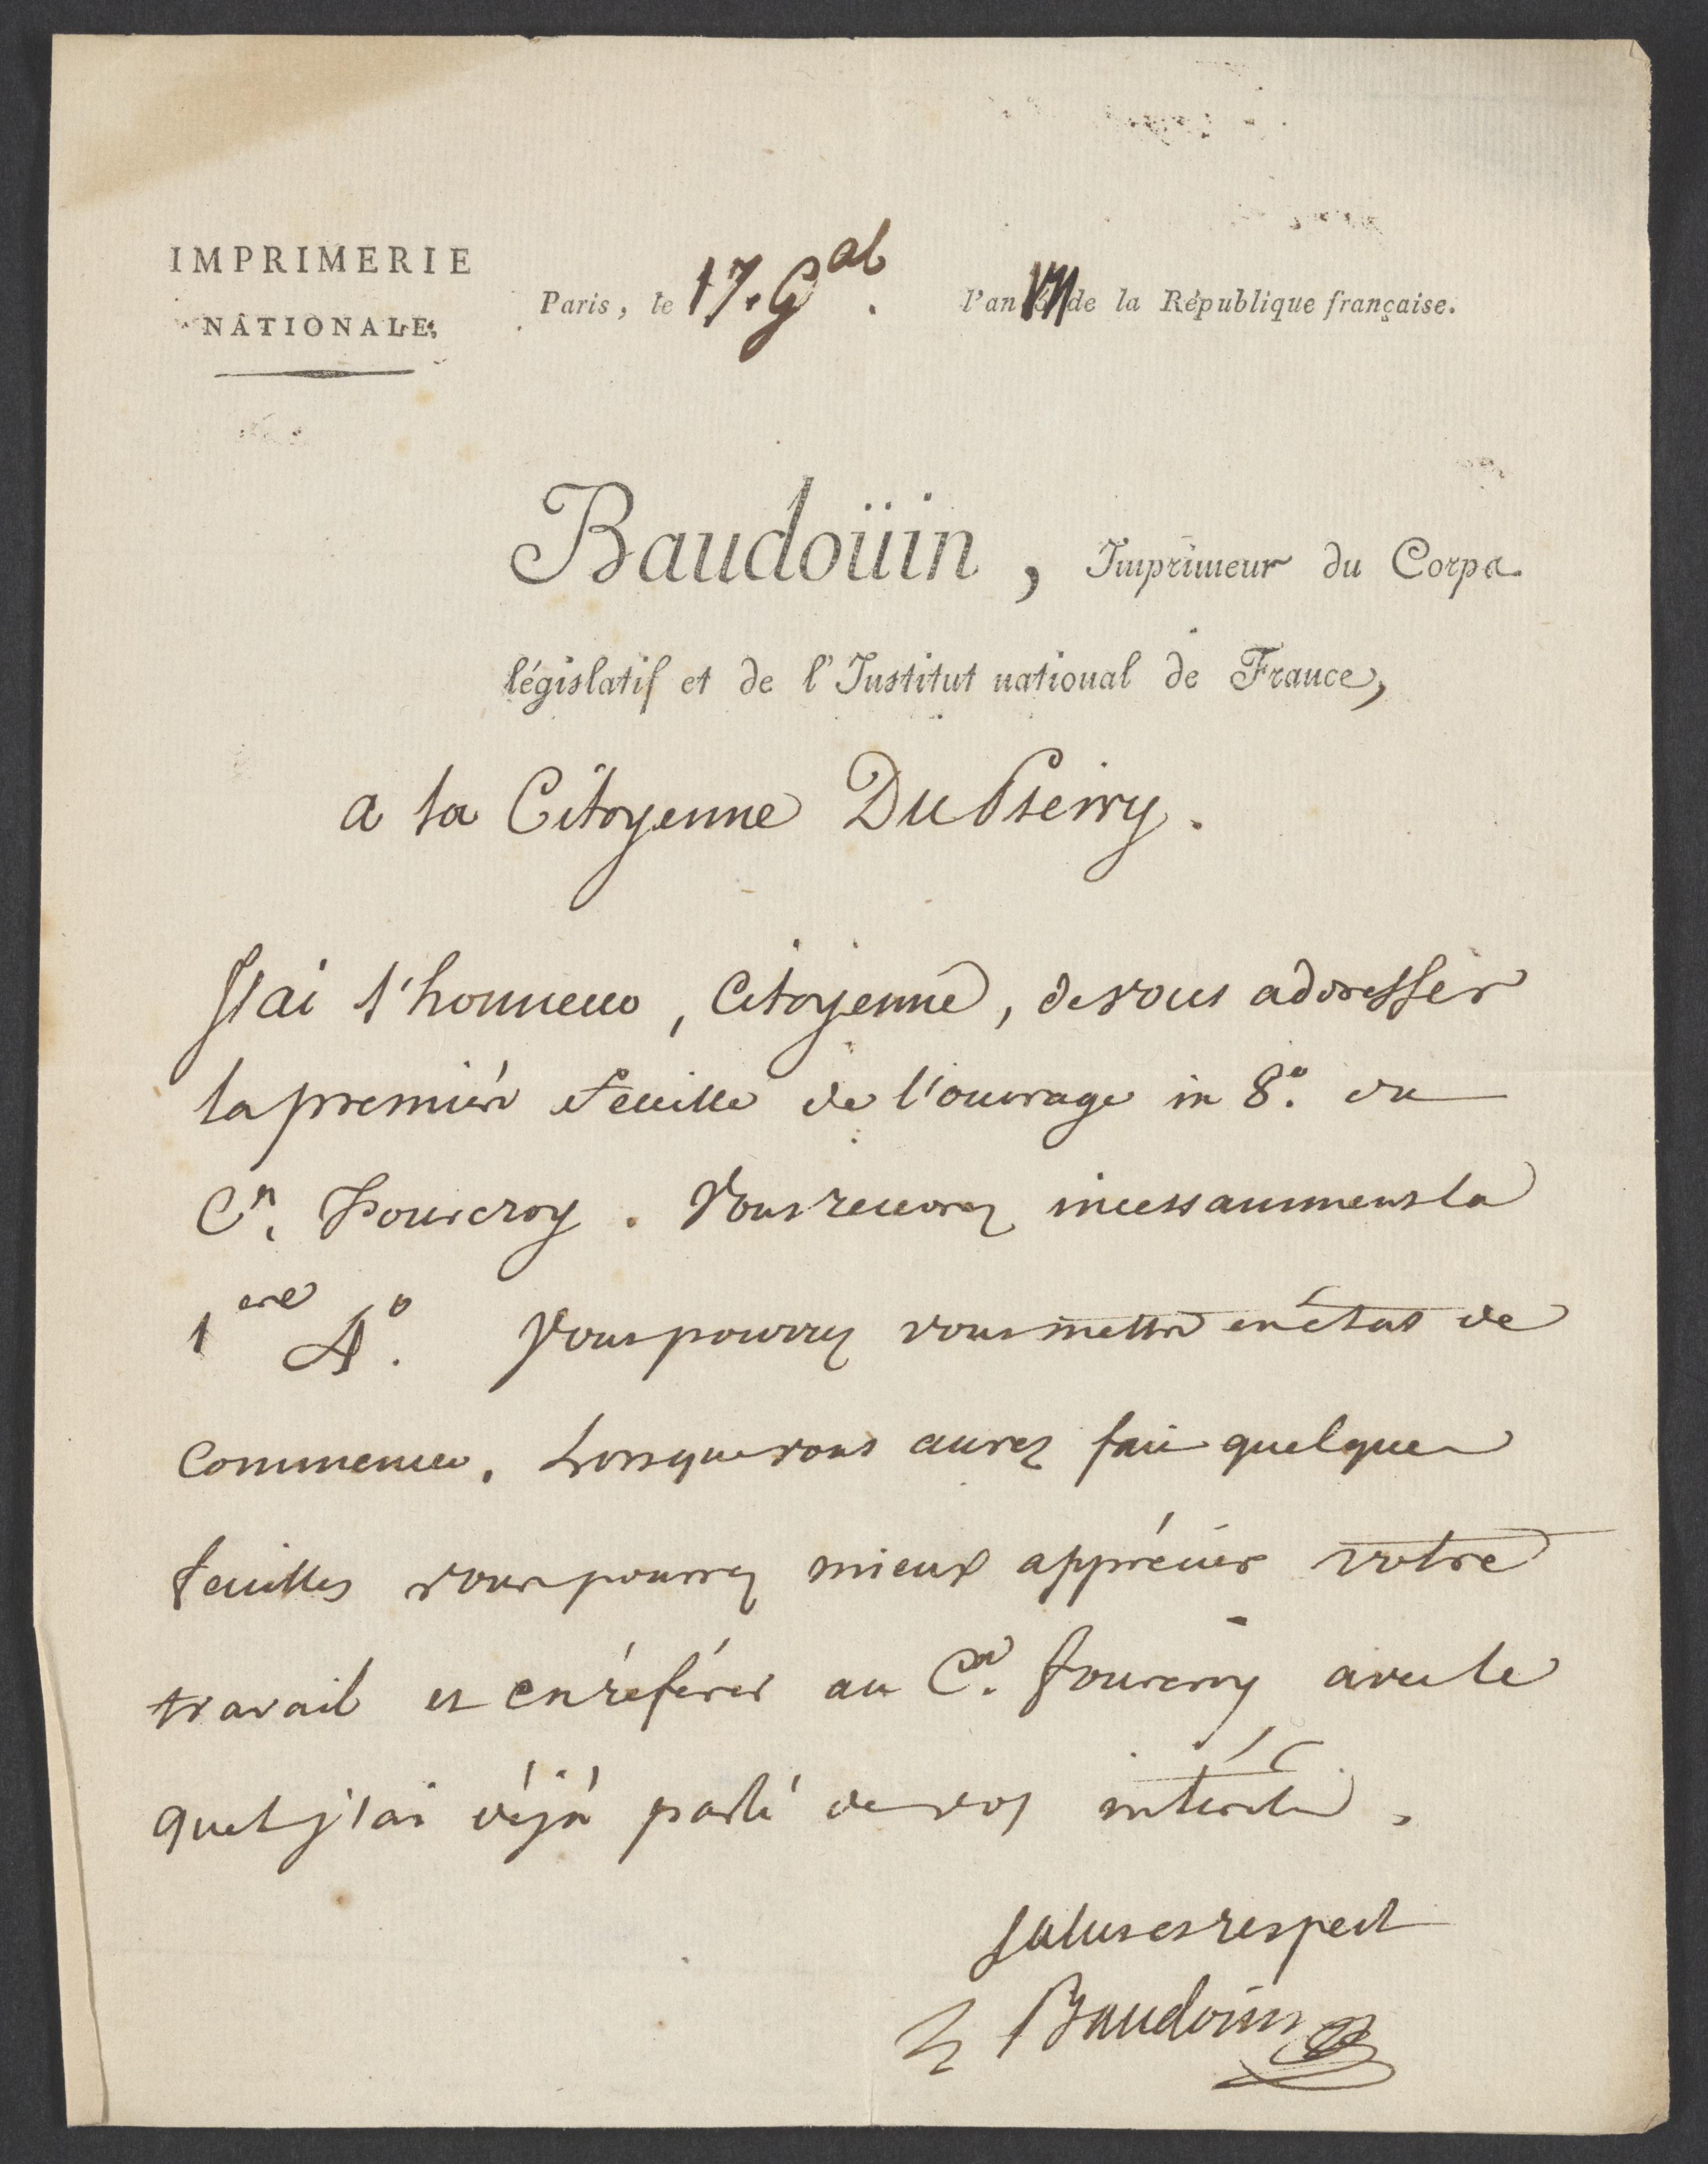 IMPRIMERIE
NATIONALE.
Paris, le 17. G^al. l'an VII de la République française.
Baudoüin, Imprimeur du Corps
législatif et de l'Institut national de France,
a la Citoyenne DuPierry.
J'ai l'honneur, Citoyenne, de vous addresser
la premiere feuille de l'ouvrage in 8.° du
C^n. Fourcroy. Vous recevrez incessamment la
1^ere 4°. Vous pourrez vous mettre en état de
commencer. Lorsque vous aurez fait quelques
feuilles vous pourrez mieux apprécier votre
travail et en référer au C^n. Fourcroy avec le
quel j'ai déjà parlé de vos intérêts.
Salut et respect
Baudouin